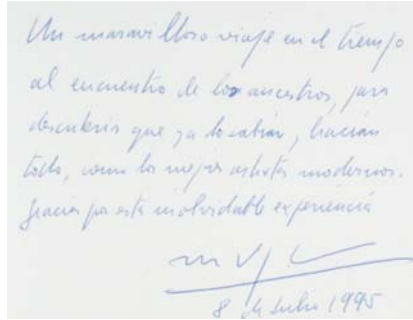 Un maravilloso viaje en el tiempo
al encuentro de los ancestros, para
descubrir que ya lo sabían, hacían
todo, como los mejores artistas modernos.
Gracias por esta inolvidable experiencia
8 de Julio 1995